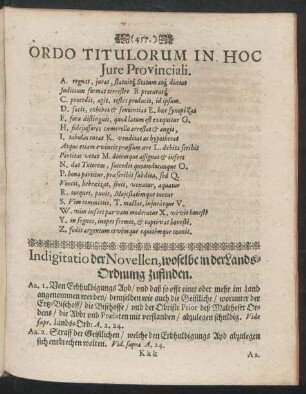 (457.)
ORDO TITULORUM IN HOC
Jure Provinciali.
A. regnat, jurat, statuitq; Statum atq; dicatas
Judicium format terrestre B. procuratq;
C. procedit, agit, testes producit, id ipsum.
D. facit, exhibet & sententias E. hæc
F. fora distinguit, quod latum est exequitur G,
H, fidejussores camerulis arrestat & angit,
I, tabulas tutat K. venditat ac hypothecat
Atque etiam evincit pressum ære L. debita scribit
Paritias vetat M. dotimque assignat & infert
N, dat Tutorem, succedit quoandocunque O.
P. bona partitur, præscribit subdita, sed Q.
Vincit, hebraizat, sivit, venatur, aquatur
R. torquet, punit, Majestatemque tuetur
S. Vim comminuit, T. mactat, infuratque V.
W. vim infert parvam moderatur X,
Y, in segnos, inopes fremit, & superat honestè,
Z. fodit argentum crebrumque equitemque coanit.
Indigitatio der Novellen, woselbe in der Lands-
Ordnung zufinden.
Aa. 1. Von Erbhuldigungs Ayd/ und daß so offt einer oder mehr im Land
angenommen werden/ demselben wie auch die Geistliche/ worunter der
Ertz-Bischoff/ die Bischoffe/ und der Obriste Prior deß Maltheser Or-
dens/ die Abbt und Prælaten mit verstanden/ abzulegen schuldig. Vide
supr. Lands-Ord: A. 2, 24.
Aa. 2. Straff der Geistlichen/ welche den Erbhuldigungs Ayd abzulegen
sich entbrechen wolten. Vid. supra A. 24.
K k k
Aa.